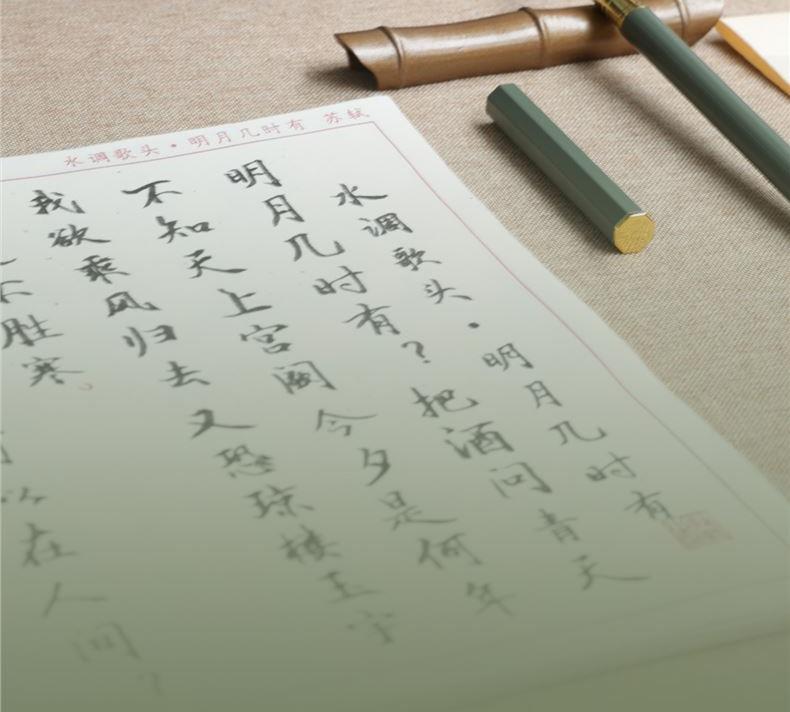 水调歌头·明月几时有 苏轼
水调歌头·明月几时有
明月几时有？把酒问青天
不知天上宫阙今夕是何年
我欲乘风归去又恐琼楼玉宇
不胜寒 似在人间？